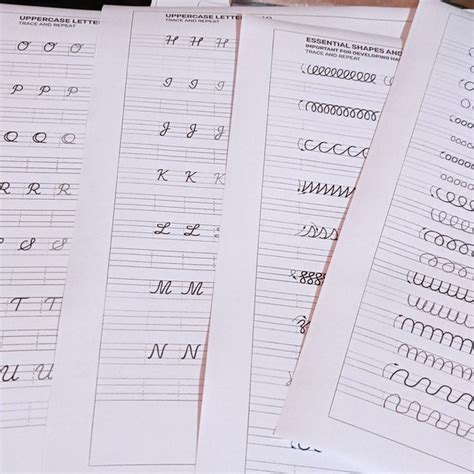 UPPERCASE LETTE
TRACE AND REPEAT
O O O
P P P
Q Q Q
R R R
S S
T T
U U
UPPERCASE LETTER
TRACE AND REPEAT
H H H
I I I
J J J
K K K
L L L
M M M
N N N
ESSENTIAL SHAPES AND
IMPORTANT FOR DEVELOPING HA
TRACE AND REPEAT